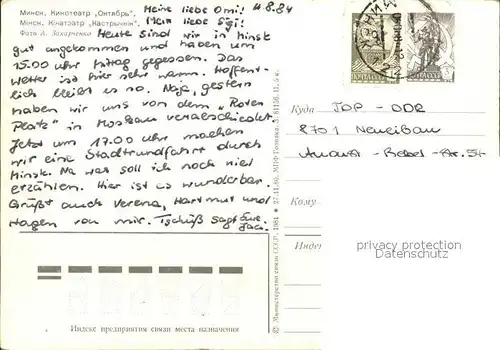 Минск. Кинотеатр „Октябрь".
Мінск. Кінатэатр „Кастрычнік".
Фото А. Захарченко
11.8.84
Meine liebe Omi!
Mein liebe Sigi!
Heute sind wir in Minsk
gut angekommen und haben um
15.00 Uhr Mittag gegessen. Das
Wetter ist hier sehr warm. Hoffent-
lich bleibt es so. Naja, gestern
haben wir uns von dem „Roten
Platz" in Moskau verabschiedet.
Jetzt um 17.00 Uhr machen
wir eine Stadtrundfahrt durch
Minsk. Na was soll ich noch viel
erzählen. Hier ist es wunderbar.
Grüßt auch Verena, Hartmut und
Hagen von mir. Tschüß sagt Eure
Jaci.
Индекс предприятия связи места назначения
© Министерство связи СССР, 1981 27.11.80. МПФ Гознака. З. 81156. Ц. 5 к.
МИНСК
Куда TOP - DDR
8701 Neueibau
August - Bebel - Str. 54
Кому
Индекс
privacy protection
Datenschutz